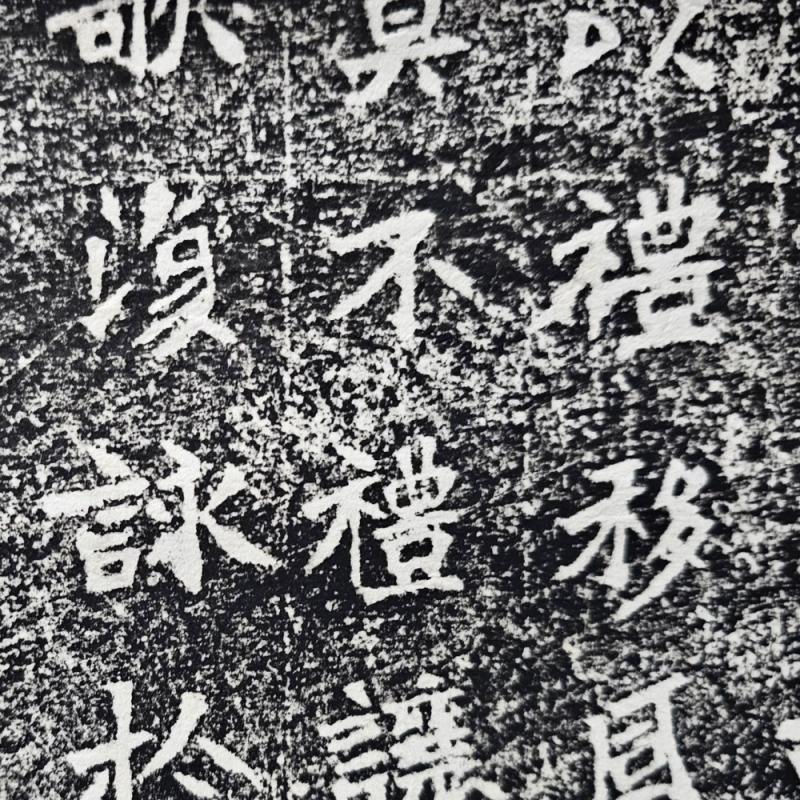 以禮移風
莫不禮讓
歌復詠於